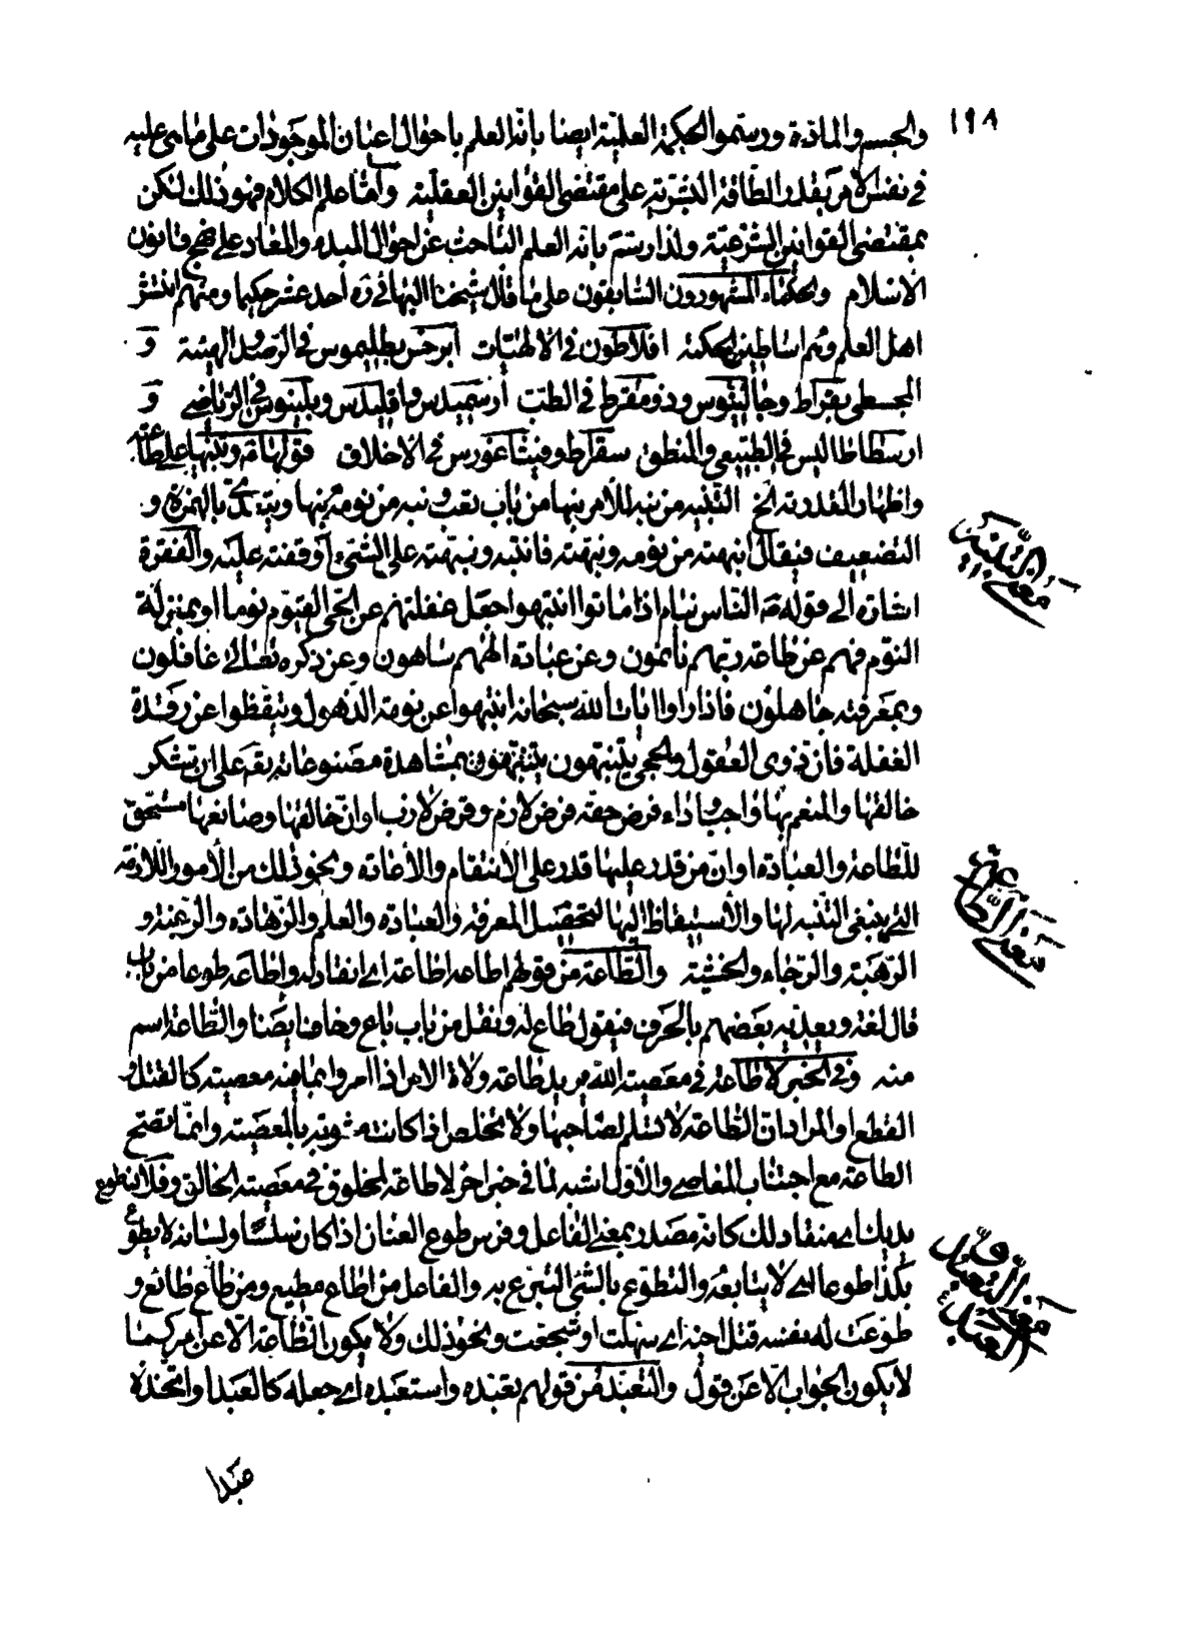 ١٩٨
والجسم والمادة ورسموا الحكمة العلمية ايضا بانه العلم باحوال اعيان الموجودات على ما هى عليه
فى نفس الامر بقدر الطاقة البشرية على مقتضى القوانين العقلية واما علم الكلام فهو ذلك لكن
بمقتضى القوانين الشرعية ولذا رسم بانه العلم الباحث عن احوال المبدء والمعاد على نهج قانون
الاسلام والحكماء المشهورون السابقون على ما قال شيخنا البهائى ره احد عشر حكيما ومنهم انتشر
اهل العلم وهم اساطين الحكمة افلاطون فى الالهيات ابرخس بطليموس فى الرصد والهيئة و
المجسطى بقراط وجالينوس وذومقرط فى الطب ارشميدس واقليدس وبلينوس فى الرياضى و
ارسطاطاليس فى الطبيعى والمنطق سقراط وفيثاغورس فى الاخلاق قولها ع وتنبيها على طاعته
واظهارا لقدرته الخ التنبيه من نبه للامر ينبها من باب تعب ونبه من نومه ينبها ويتعدى بالهمزة و
التضعيف فيقال انبهته من نومه ونبهته فانتبه ونبهته على الشىء اوقفته عليه والفقرة
اشارة الى قوله ص الناس نيام اذا ماتوا انتبهوا جعل غفلتهم عن الحى القيوم نوما او بمنزلة
النوم فهم عن طاعة ربهم نائمون وعن عبادة الههم ساهون وعن ذكره تعالى غافلون
وبمعرفته جاهلون فاذا راوا ايات الله سبحانه انتبهوا عن نومة الذهول وتيقظوا عن رقدة
الغفلة فان ذوى العقول والحجى يتنبهون بمشاهدة مصنوعاته تع على ان شكر
خالقها والمنعم بها واجب واداء فرض حقه فرض لازم وقرض لازب او ان خالقها وصانعها مستحق
للطاعة والعبادة او ان من قدر عليها قدر على الانتقام والاعادة ونحو ذلك من الامور اللازمة
التى ينبغى التنبه لها والاستيقاظ اليها لتحصيل المعرفة والعبادة والعلم والزهادة والرغبة و
الرهبة والرجاء والخشية والطاعة من قولهم اطاعه اطاعة اى انقاد له واطاعه طوعا من باب
قال لغة ويعديه بعضهم بالحرف فيقول طاع له ونقل من باب باع وخاف ايضا والطاعة اسم
منه وفى الخبر لا طاعة فى معصية الله يريد طاعة ولاة الامر اذا امروا بما فيه معصية كالقتل و
القطع او المراد ان الطاعة لا تسلم لصاحبها ولا تخلص اذا كانت مشوبة بالمعصية وانما تصح
الطاعة مع اجتناب المعاصى والاول اشبه لما فى خبر اخر لا طاعة لمخلوق فى معصية الخالق وفلان طوع
يديك اى منقاد لك كانه مصدر بمعنى الفاعل وفرس طوع العنان اذا كان سلسا ولسانه لا يطوع
بكذا طوعا اى لا يتابعه والتطوع بالشىء التبرع به والفاعل من اطاع مطيع ومن طاع طائع و
طوعت له نفسه قتل اخيه اى سهلت او شجعت ونحو ذلك ولا يكون الطاعة الا عن امر كما
لا يكون الجواب الا عن قول والتعبد من قولهم تعبده واستعبده اى جعله كالعبد او اتخذه
عبدا
معنى التنبيه
معنى الطاعة
معنى التعبد